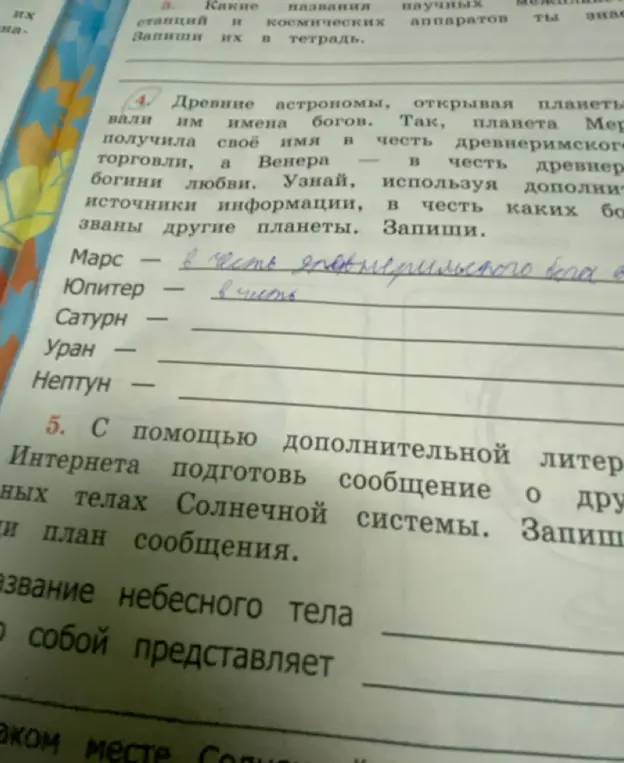 их
на-
3. Какие названия научных
станций и космических аппаратов ты зна
Запиши их в тетрадь.
4. Древние астрономы, открывая планеты
вали им имена богов. Так, планета Мер
получила своё имя в честь древнеримског
торговли, а Венера — в честь древнер
богини любви. Узнай, используя дополни
источники информации, в честь каких бо
званы другие планеты. Запиши.
Марс — в честь древнеримского бога в
Юпитер — в честь
Сатурн —
Уран —
Нептун —
5. С помощью дополнительной литер
Интернета подготовь сообщение о дру
ных телах Солнечной системы. Запиш
и план сообщения.
азвание небесного тела
о собой представляет
аком месте